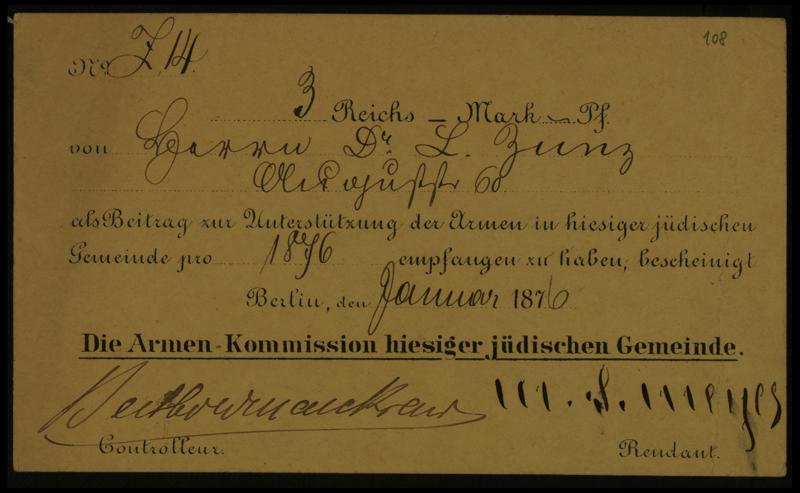 108
No Z, 14.
3 Reichs – Mark – Pf.
von Herrn Dr. L. Zunz
Auguststr 60.
als Beitrag zur Unterstützung der Armen in hiesiger jüdischen
Gemeinde pro 1876 empfangen zu haben, bescheinigt
Berlin, den Januar 1876
Die Armen-Kommission hiesiger jüdischen Gemeinde.
M. S. Meyer
Controlleur. Rendant.